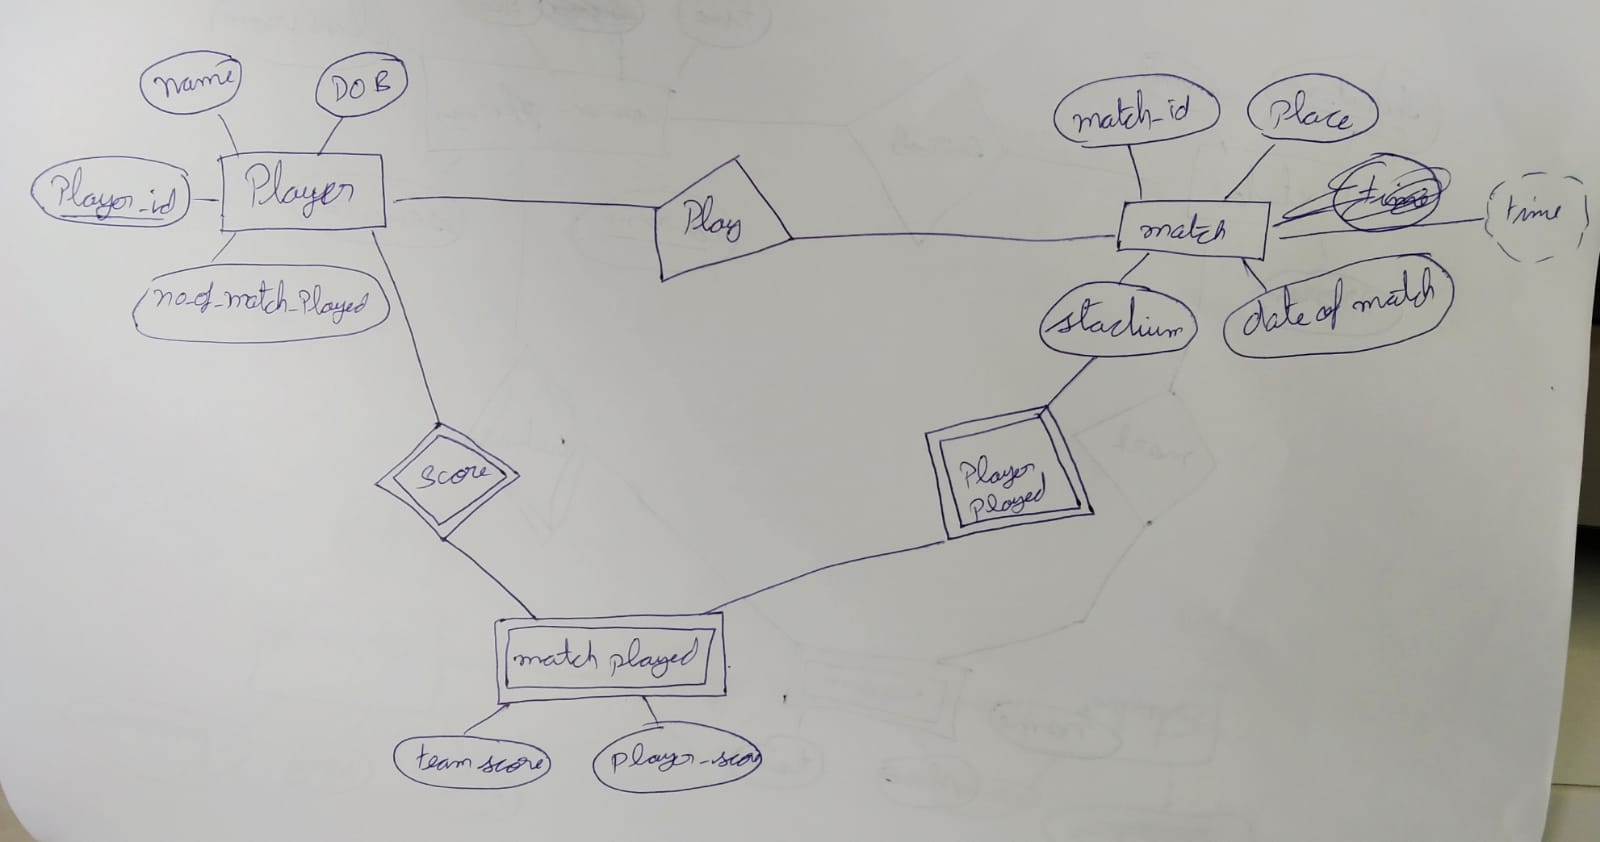 name
DOB
Player_id
Player
no_of_match_Played
Play
match_id
Place
time
time
match
stadium
date of match
Score
Player
Played
match played
team score
player_score